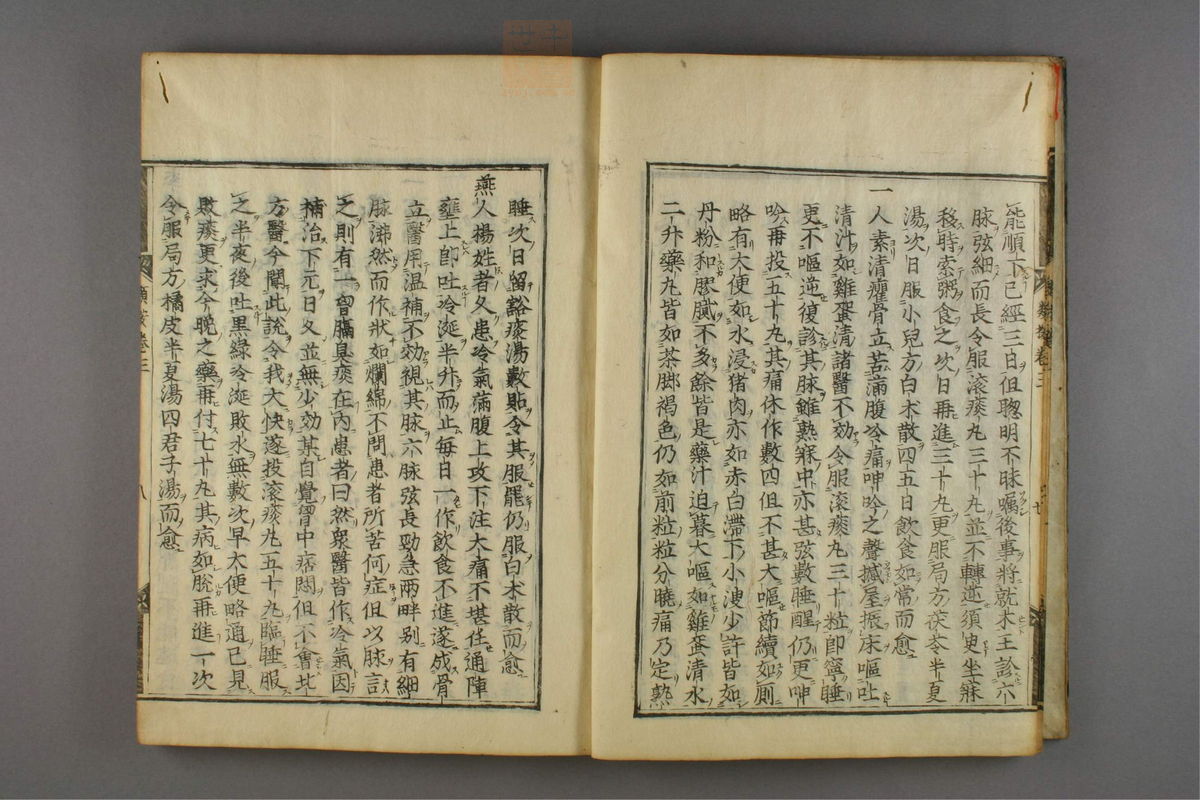 能順下已經三日但聰明不昧囑後事將就木王診六
脉弦細而長令服滚痰丸三十丸並不轉逆須臾坐寐
移時索粥食之次日再進三十丸更服局方茯苓半夏
湯次日服小兒方白术散四五日飲食如常而愈
一人素清癯骨立苦滿腹冷痛呻吟之聲撼屋振床嘔吐
清汁如雞蛋清諸醫不効令服滚痰丸三十粒卽寧睡
更不嘔逆復診其脉雖熟寐中亦甚弦數睡醒仍更呻
吟再投五十丸其痛休作數四但不甚大嘔節續如厠
略有大便如水浸猪肉亦如赤白滯下小溲少許皆如
丹粉和膠膩不多餘皆是藥汁迫暮大嘔如雞蛋清水
二升藥丸皆如茶脚褐色仍如前粒粒分曉痛乃定熟
睡次日留谿痰湯數貼令其服罷仍服白术散而愈
燕人楊姓者久患冷氣滿腹上攻下注大痛不堪任通陣
壅上卽吐冷涎半升而止每日一作飲食不進遂成骨
立醫用温補不効視其脉六脉弦長勁急兩畔别有細
脉沸然而作狀如爛綿不問患者所苦何症但以脉言
之則有一胷膈臭痰在内患者曰然衆醫皆作冷氣因
補治下元日久並無少効某自覺胷中痞悶但不會此
方醫今聞此說令我大快遂投滚痰丸五十丸臨睡服
之半夜後吐黑綠冷涎敗水無數次早大便略通已見
敗痰更求今晚之藥再付七十丸其病如脫再進一次
令服局方橘皮半夏湯四君子湯而愈